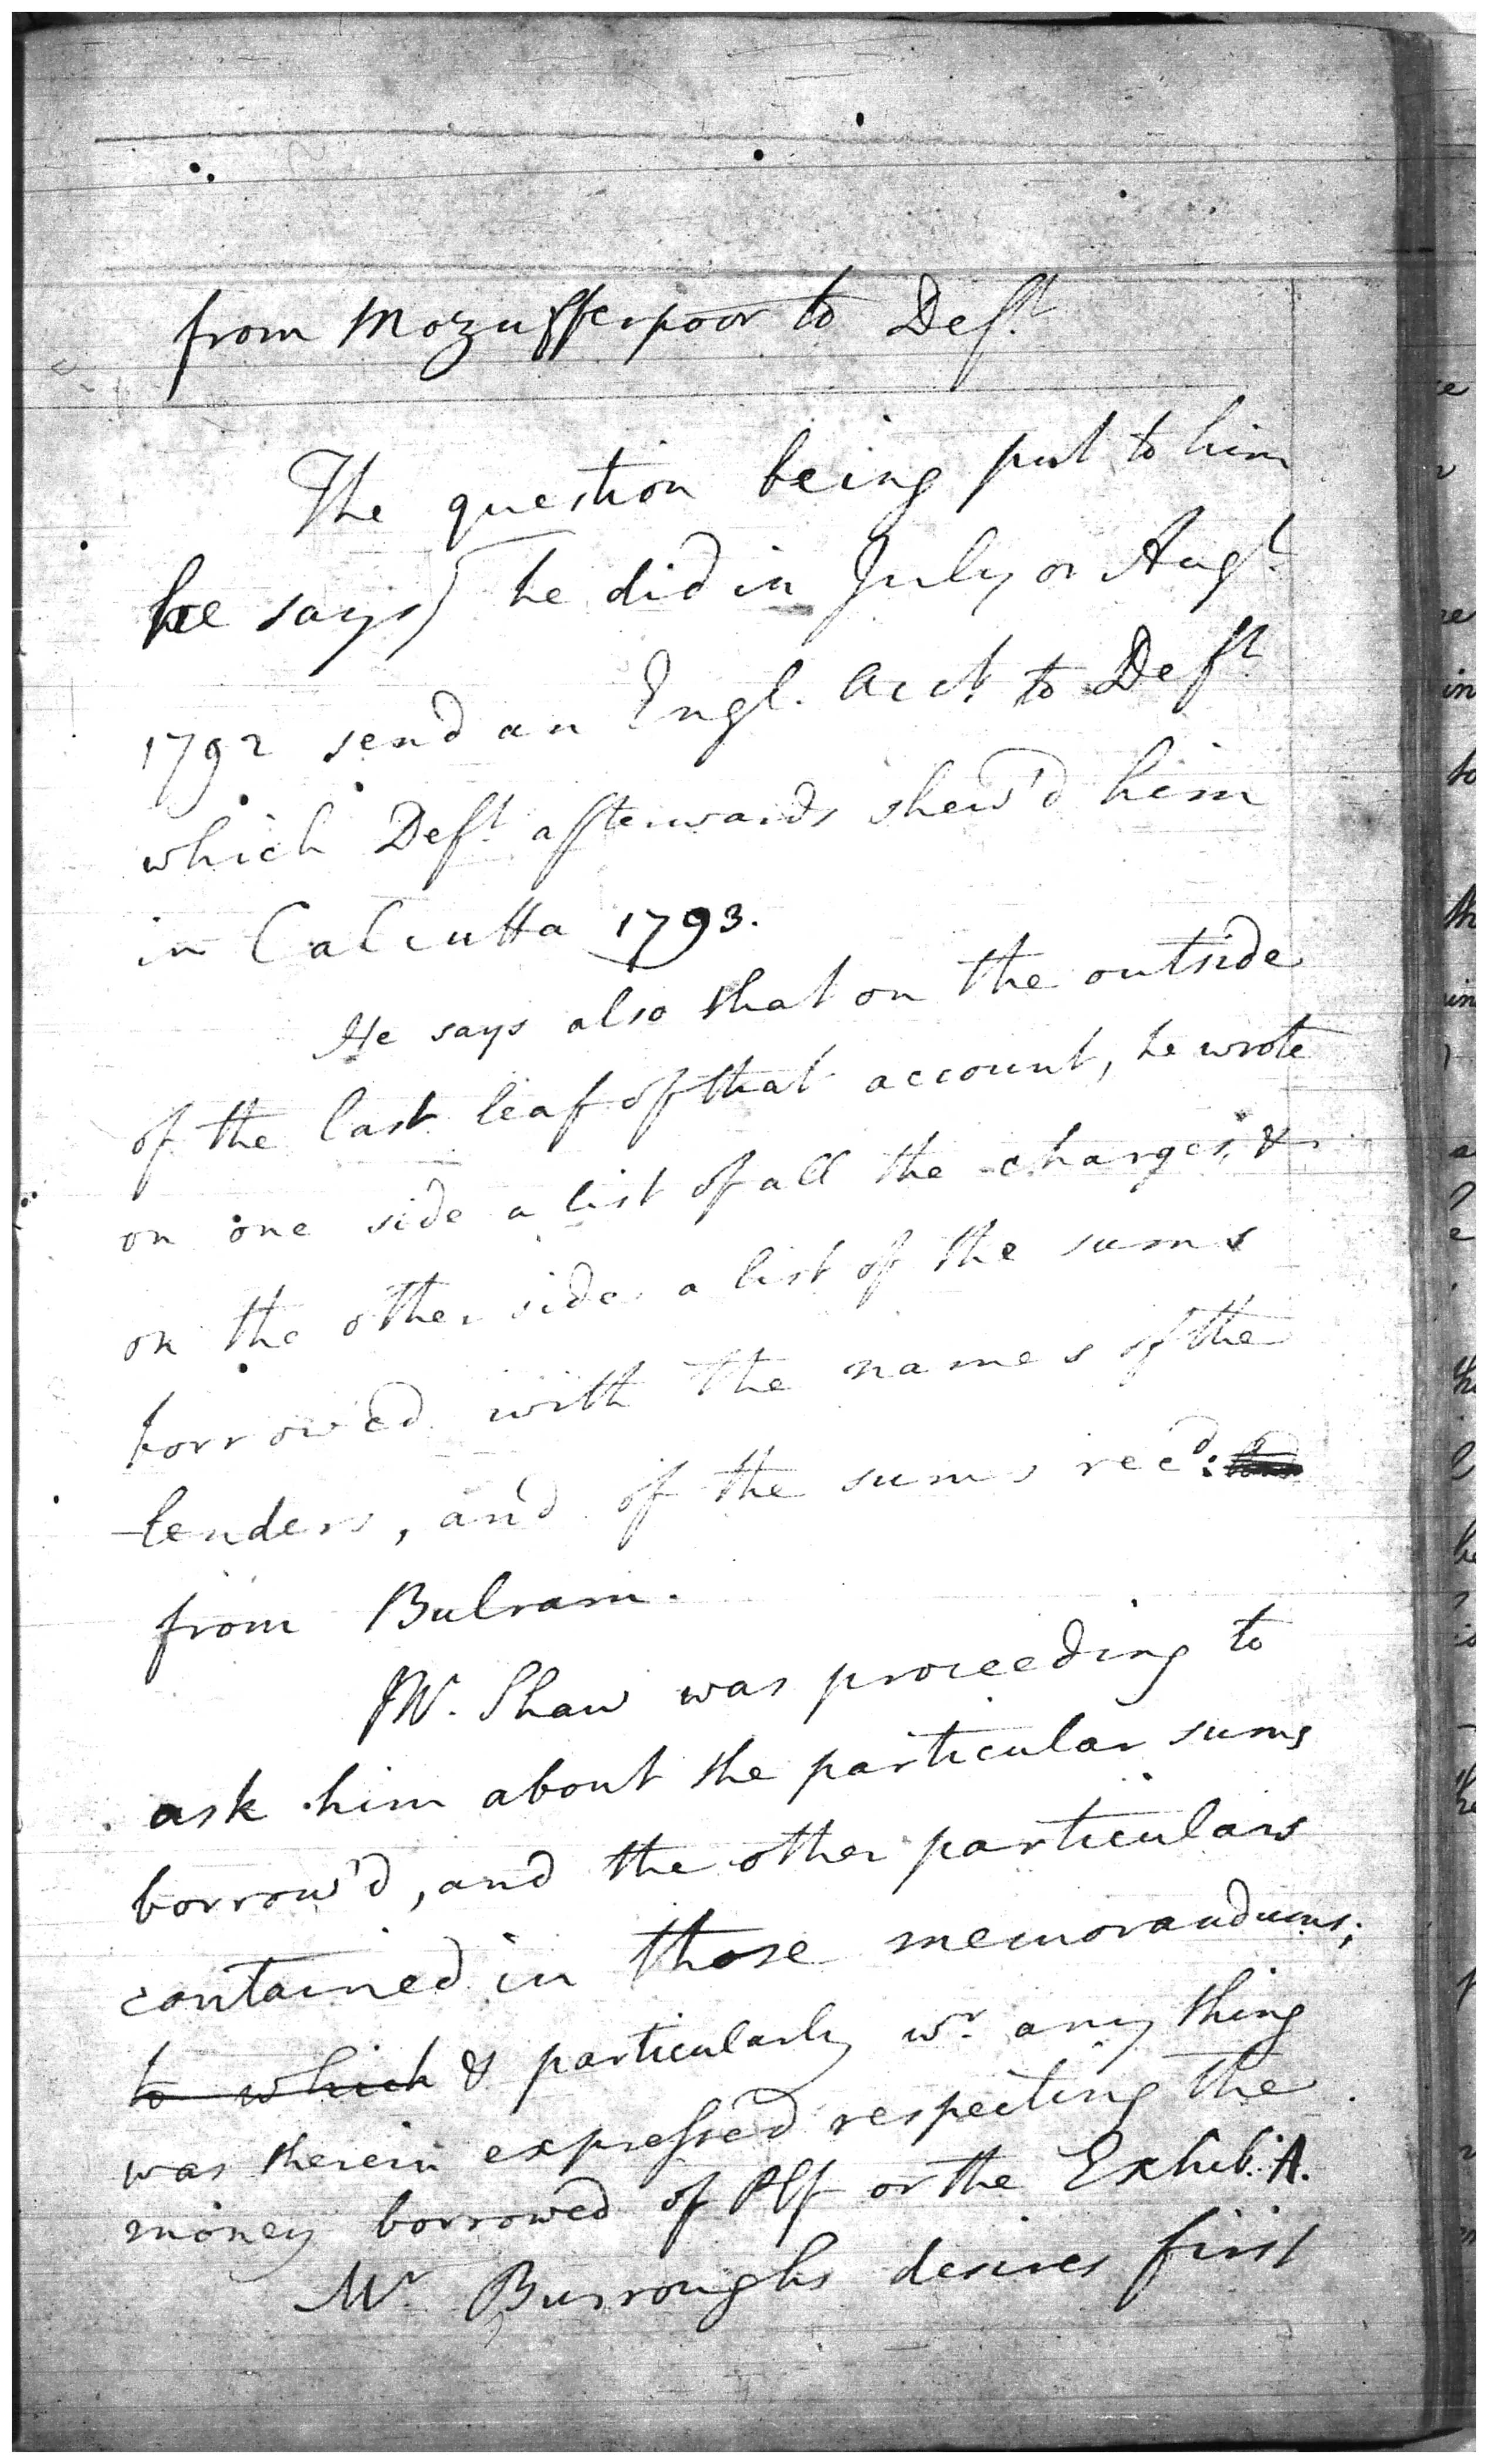 from Mozufferpoor to Deft
The question being put to him
he says) he did in July or Augt
1792 send an Engl. Acct. to Deft
which Deft afterwards shew'd him
in Calcutta 1793.
He says also that on the outside
of the last leaf of that account, he wrote
on one side a list of all the charges, &
on the other side a list of the sums
borrowed with the names of the
lenders, and of the sums recd:
from Bulram.
Mr. Shaw was proceeding to
ask him about the particular sums
borrow'd, and the other particulars
contained in those memorandums;
to which & particularly wr. any thing
was therein express'd respecting the
money borrowed of Plf or the Exhib. A.
Mr Burroughs desires first